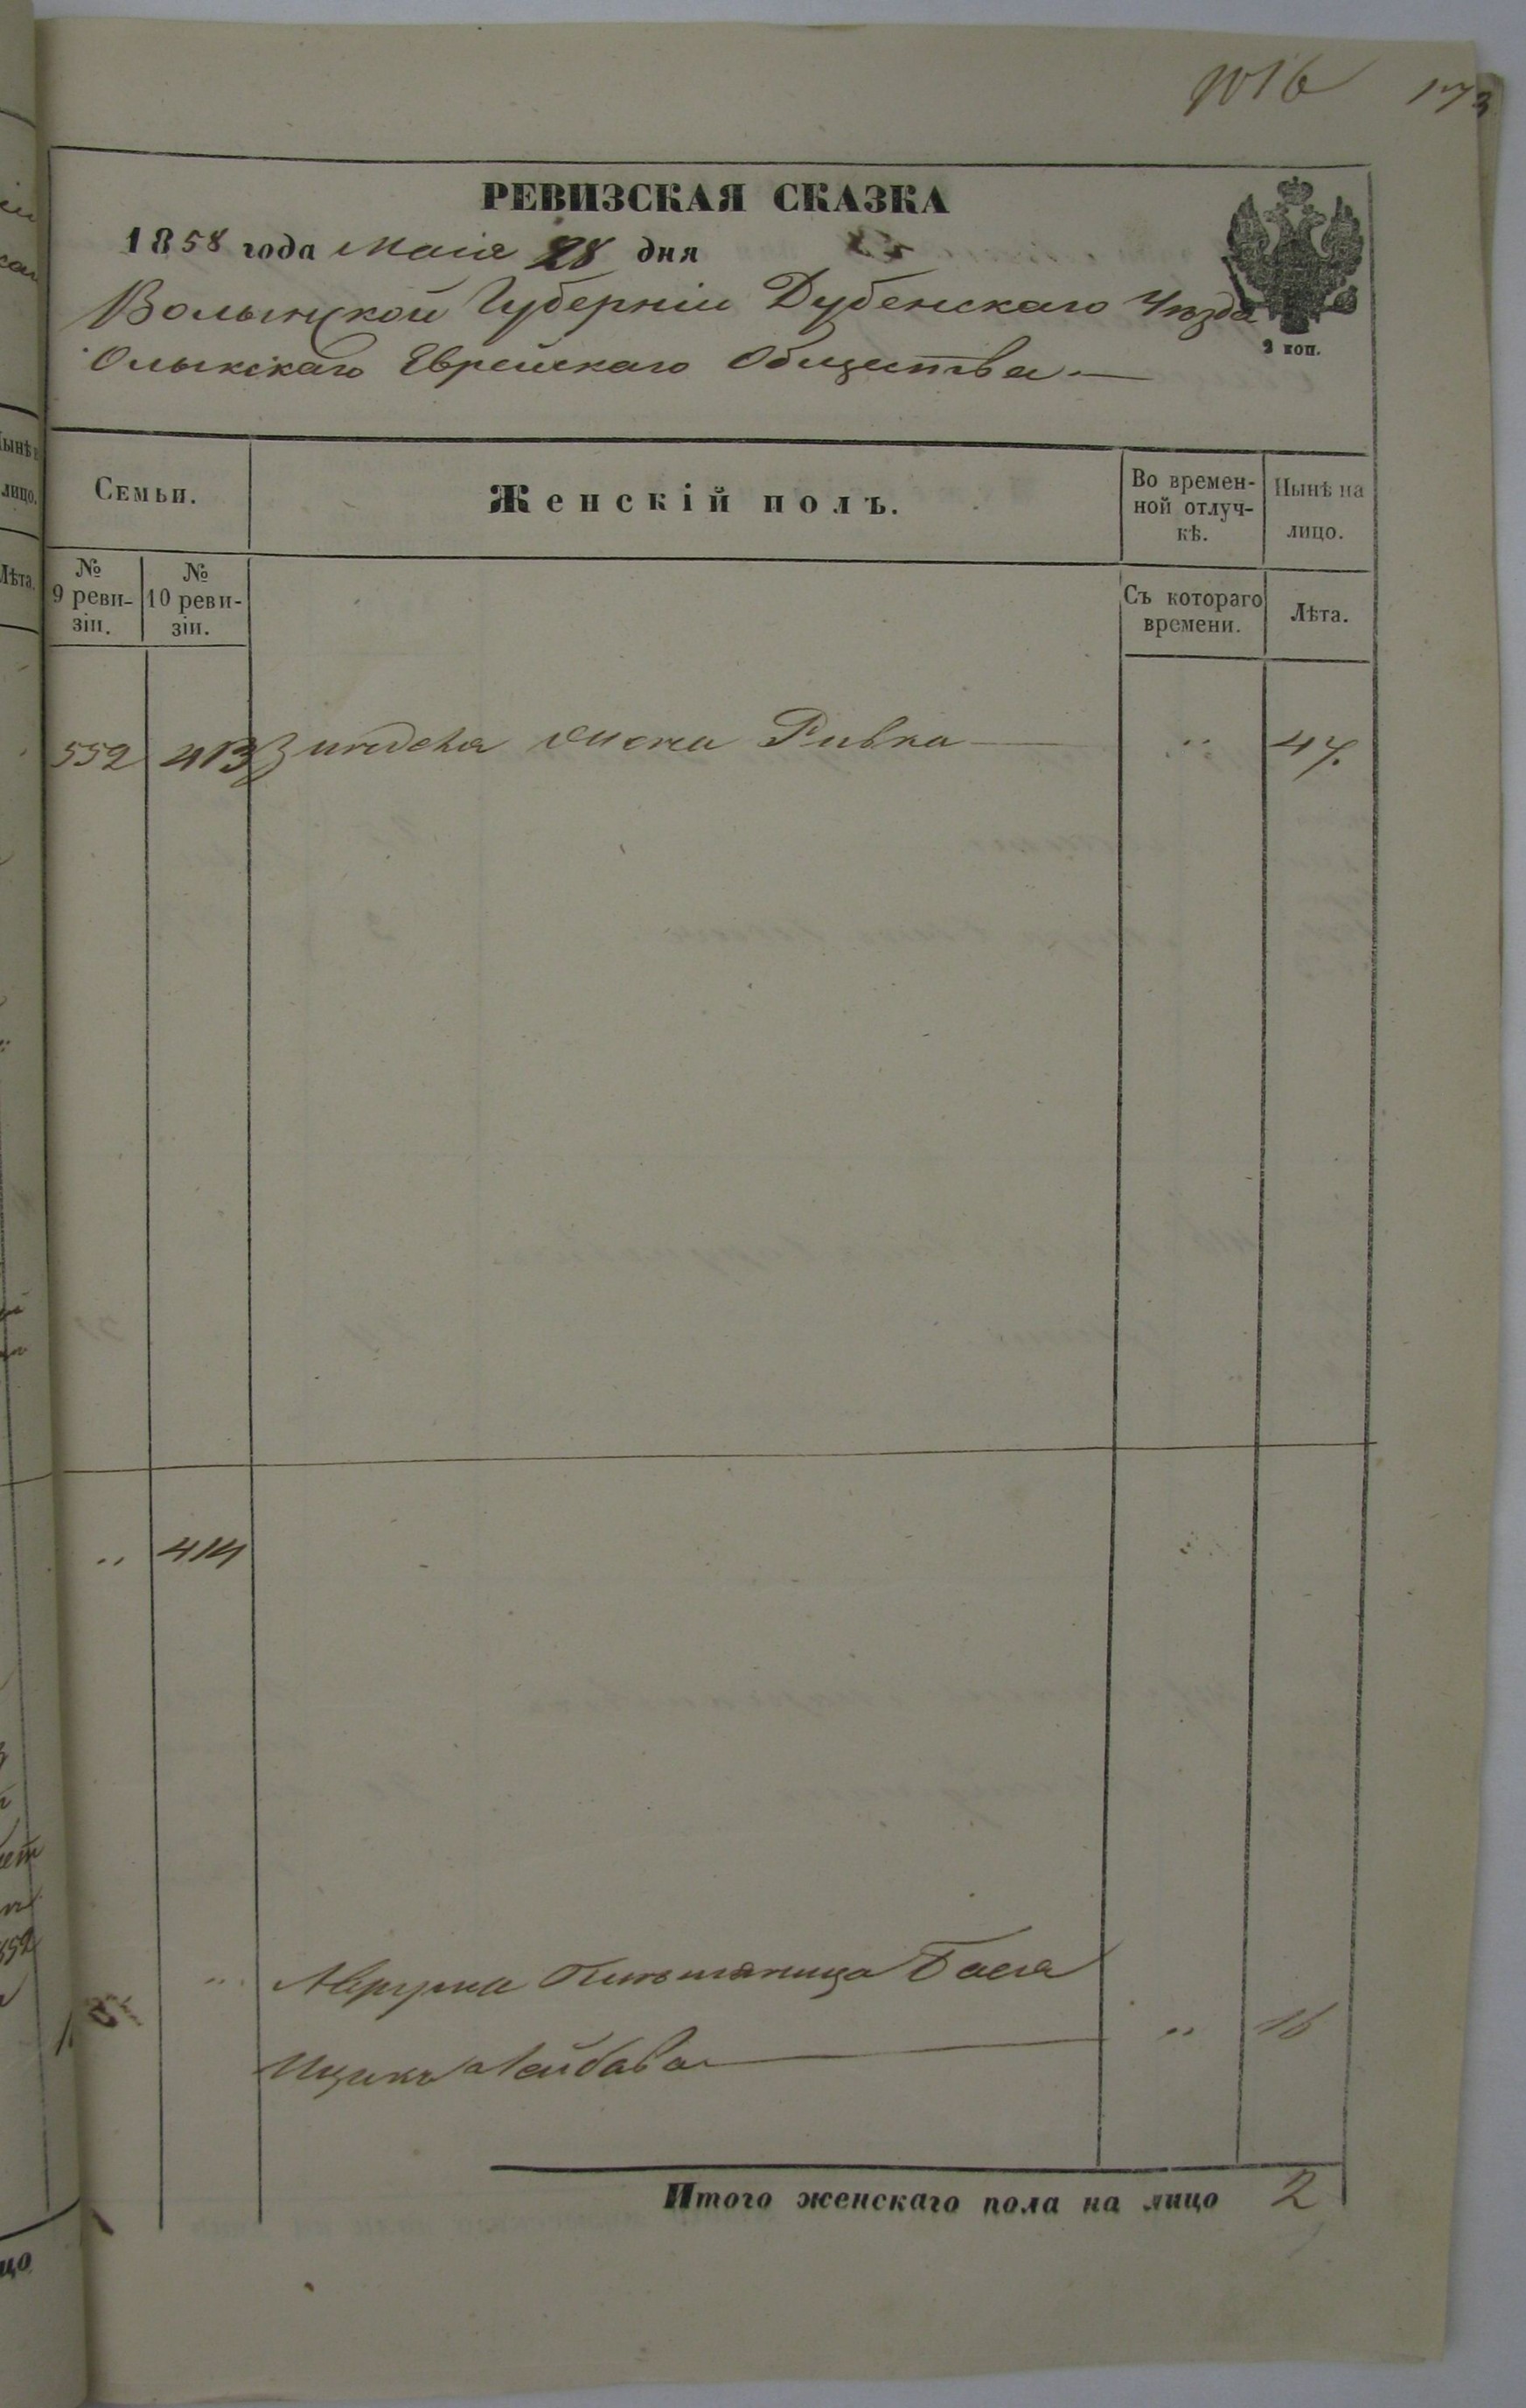 173
РЕВИЗСКАЯ СКАЗКА
1858 года Маія 28 дня
Волынской Губерніи Дубенскаго Уѣзда
Олыкскаго Еврейскаго Общества
2 коп.
Семьи.
Женскій полъ.
Во времен-
ной отлуч-
кѣ.
Нынѣ на
лицо.
№
9 реви-
зіи.
№
10 реви-
зіи.
Съ котораго
времени.
Лѣта.
552 413 жена Ривка 47.
414
Бася
Ицикъ Лейбова 16
Итого женскаго пола на лицо 2